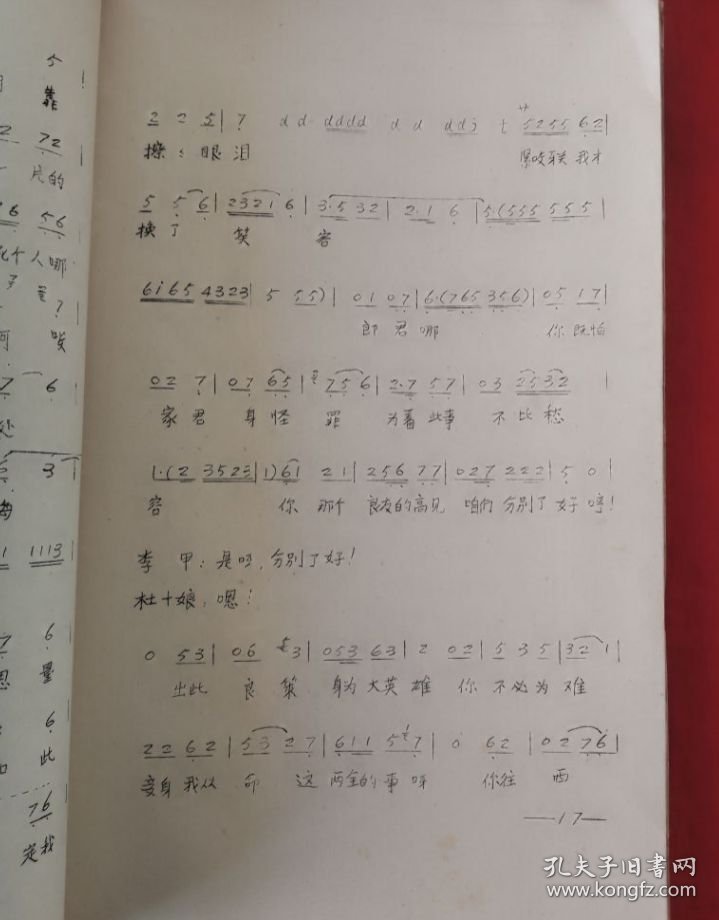 2 2 5 | 7 d d dddd d d ddj 7 サ 5255 6·2 |
擦:眼泪 紧咬联 我才
5 5 6 | 2321 6 | 3·5 32 | 2·1 6 | 5·(555 555 |
换了 笑 容
6i65 4323 | 5 55) | 01 07 | 6·(765 356) | 05 17 |
郎君哪 你既怕
02 7 | 07 65 | 756 | 2·7 57 | 03 2532 |
家君 身怪 罪 为着此事 不比愁
1·(2 3523 | 1) 61 21 | 256 77 | 027 222 | 5 0 |
容 你 那个 良友的高见 咱们 分别了 好哼!
李 甲:是呀,分别了好!
杜十娘:嗯!
0 53 | 06 53 | 053 63 | 2 02 | 5 35 | 32 1 |
出此 良策 身为大英雄 你 不必为 难
2262 | 53 27 | 611 57 | 0 62 | 02 76 |
妾身我从 命 这 两全的事呀 你往 西
—17—
5
靠
72
片的
56
人哪
?
唉
7 6
处
3
1113
6
量
6
此
76
定我
孔夫子旧书网
www.kongfz.com